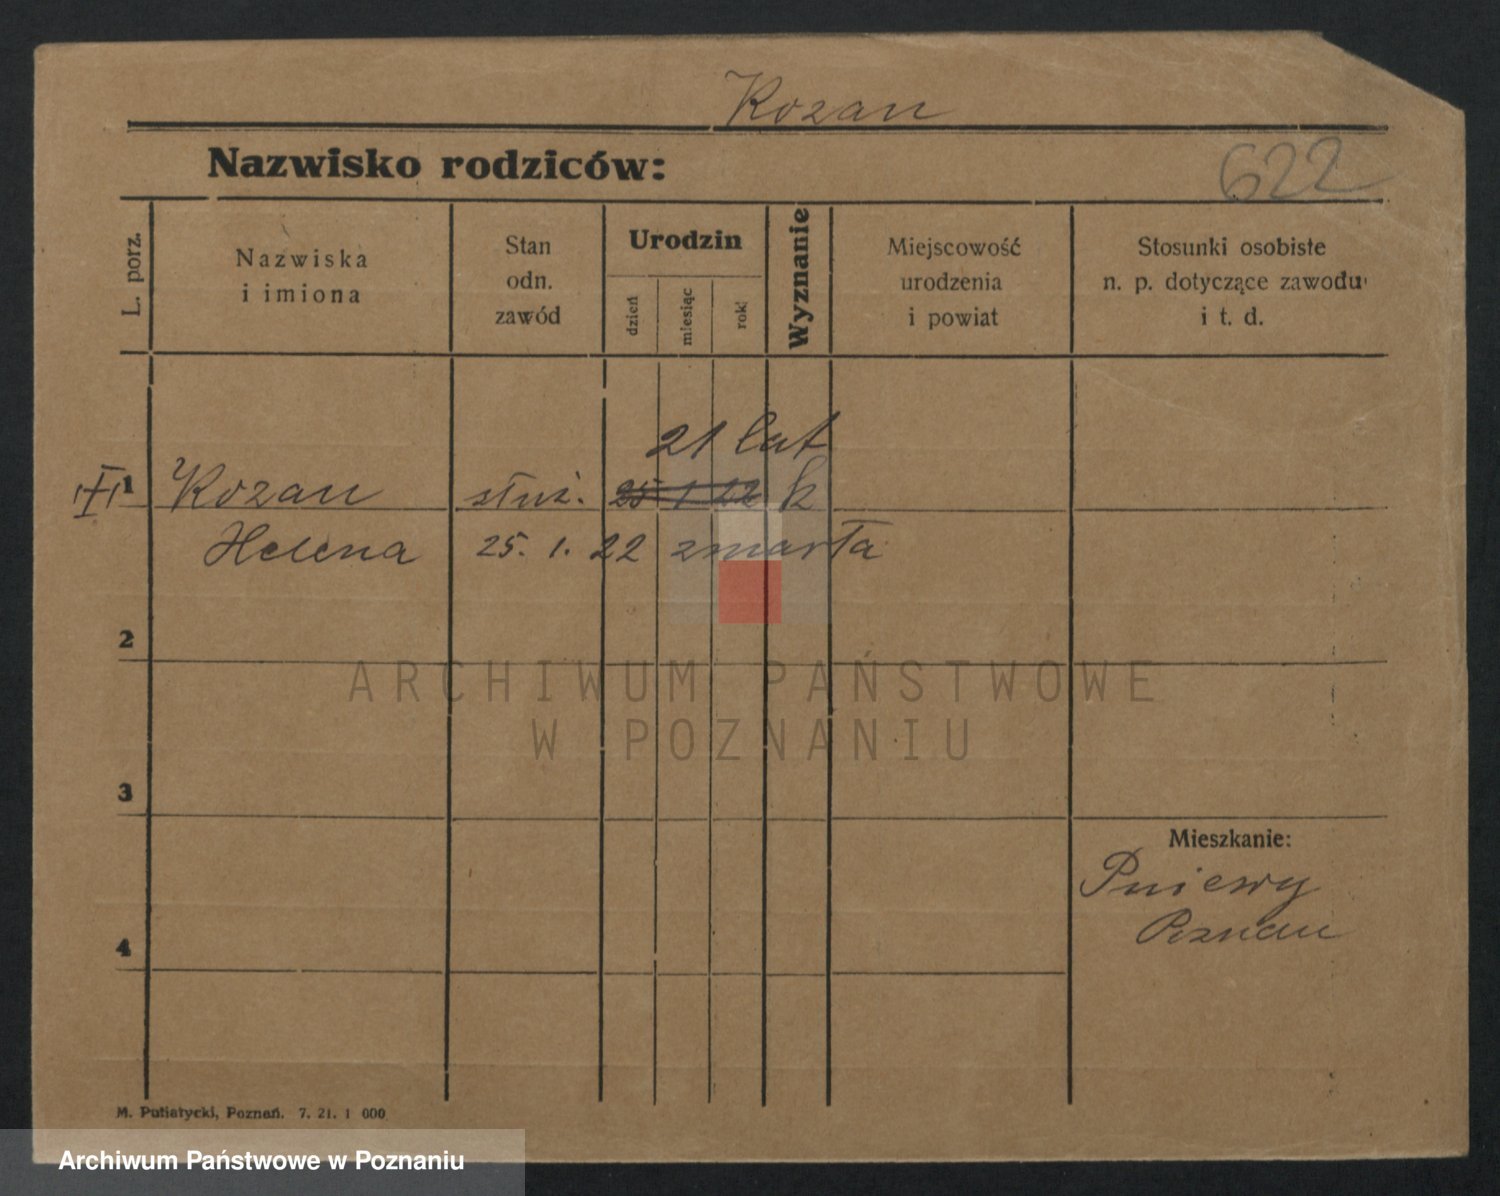 Kozan
Nazwisko rodziców:
622
L. porz.
Nazwiska
i imiona
Stan
odn.
zawód
Urodzin
dzień
miesiąc
rok
Wyznanie
Miejscowość
urodzenia
i powiat
Stosunki osobiste
n. p. dotyczące zawodu
i t. d.
21 lat
1 Kozan służ. 25 1 22 k
Helena 25. 1. 22 zmarła
2
ARCHIWUM PAŃSTWOWE
W POZNANIU
3
Mieszkanie:
Pniewy
Poznan
4
M. Putiatycki, Poznań. 7. 21. 1 000
Archiwum Państwowe w Poznaniu